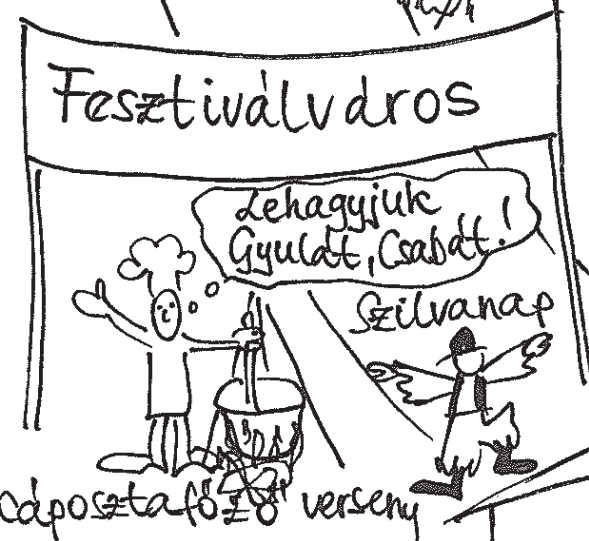 Fesztiválváros
Lehagyjuk
Gyulát, Csabát!
Szilvanap
cáposztafőző verseny